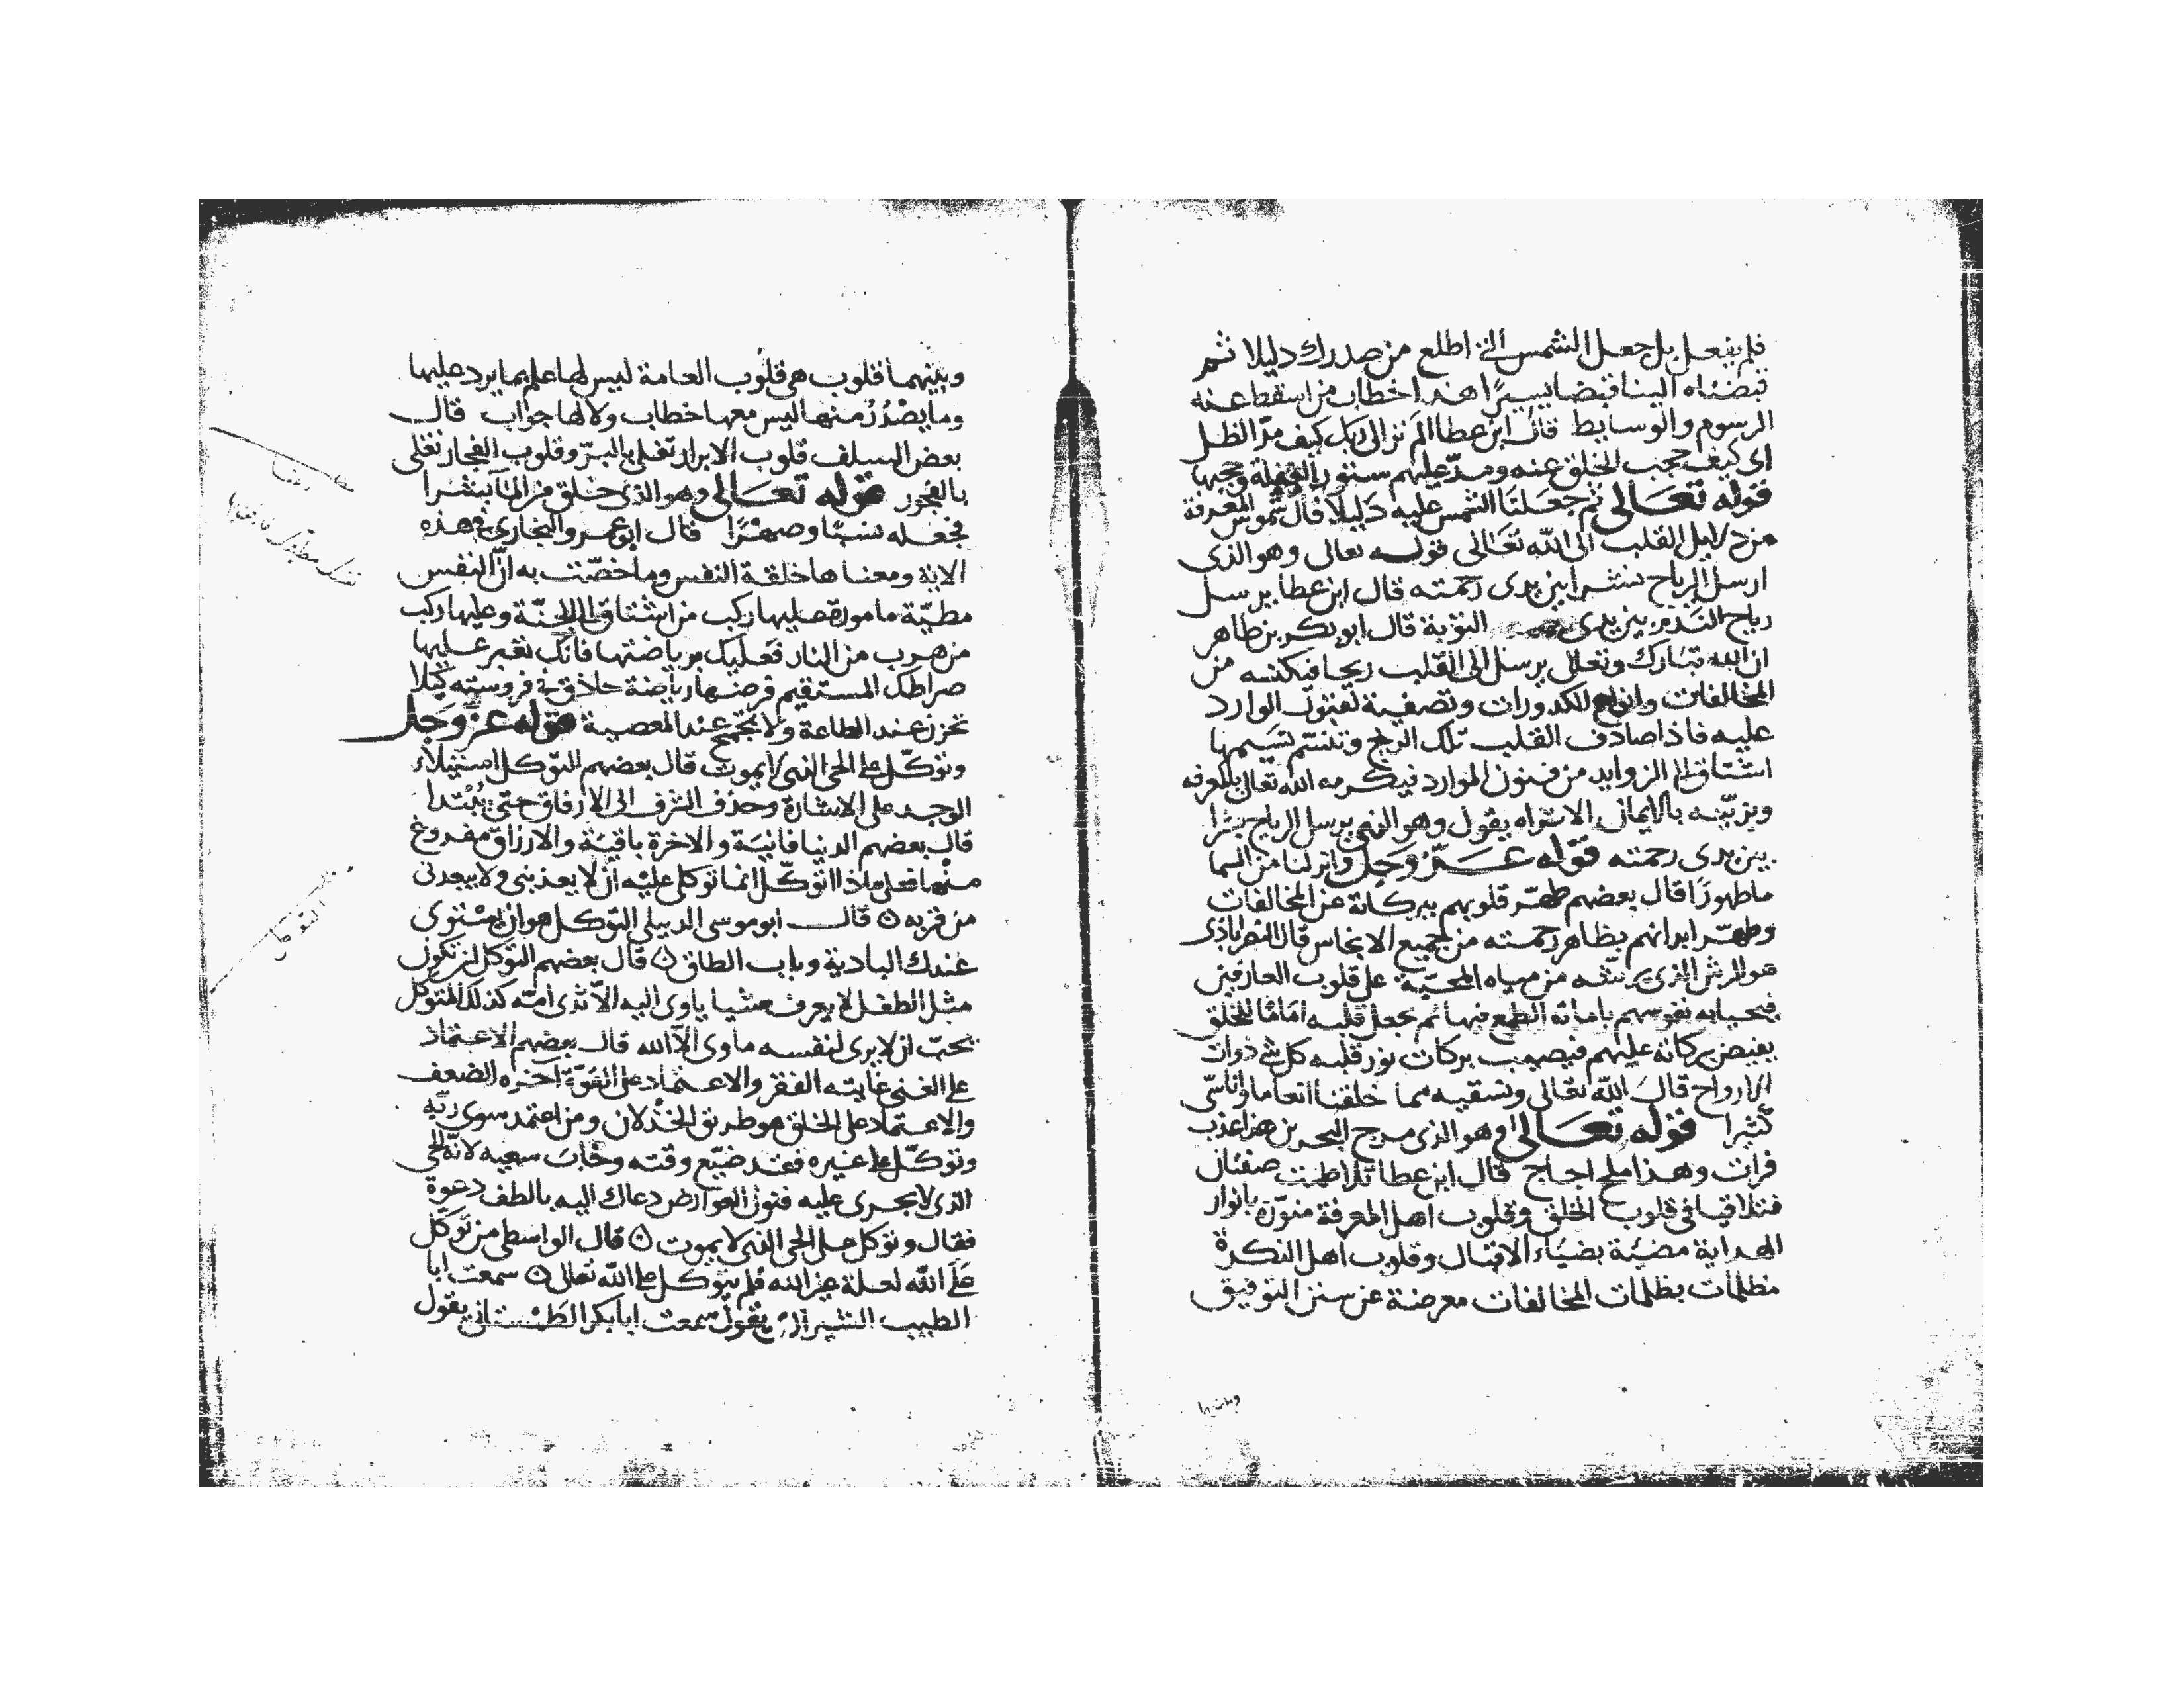 فلم يفعل بل جعل الشمس التي اطلع من صدرك دليلا ثم
قبضناه الينا قبضا يسيرًا هذا خطاب من اسقط عنه
الرسوم والوسايط قال ابن عطا الم تر الى ربك كيف مدّ الظل
اى كيف حجب الخلق عنه ومدّ عليهم ستور الغفلة وحجبها
قوله تعالى ثم جعلنا الشمس عليه دليلا قال شموس المعرفة
من دلايل القلب الى الله تعالى قوله تعالى وهو الذى
ارسل الرياح نشرا بين يدى رحمته قال ابن عطا يرسل
رياح الندم بين يدى التوبة قال ابو بكر بن طاهر
ان الله تبارك وتعالى يرسل الى القلب ريحا فيكنسه من
المخالفات وانواع الكدورات وتصفية لقبول الوارد
عليه فاذا صادف القلب تلك الريح وتنسّم نسيمها
اشتاق الى الزوايد من فنون الموارد فيكرمه الله تعالى بالمعرفه
ويزيّنه بالايمان الا تراه يقول وهو الذى يرسل الرياح بشرا
بين يدى رحمته قوله عزّ وجل وانزلنا من السما
ماطهورًا قال بعضهم طهّر قلوبهم ببركاته عن المخالفات
وطهّر ابدانهم بظاهر رحمته من جميع الانجاس قال النصراباذى
هو الرش الذى يرشّه من مياه المحبّة على قلوب العارفين
فيحيا به نفوسهم باماتة الطبع فيها ثم يجعل قلبه امامًا للخلق
يفيض بركاته عليهم فيصيب بركات نور قلبه كل شئ ذوات
الارواح قال الله تعالى ونسقيه مما خلقنا انعاما واناسّى
كثيرا قوله تعالى وهو الذى مرج البحرين هذا عذب
فرات وهذا ملح اجاج قال ابن عطا تلاطمت صفتان
فتلاقيا فى قلوب الخلق وقلوب اهل المعرفة منوّرة بانوار
الهداية مضيّة بضياء الاقبال وقلوب اهل النكرة
مظلمات بظلمات المخالفات معرضة عن سنن التوفيق
وبينهما
وبينهما قلوب هى قلوب العامة ليس لها علم بما يرد عليها
وما يصْدُرُ منها ليس معها خطاب ولا لها جواب قال
بعض السلف قلوب الابرار تغلى بالبرّ وقلوب الفجار تغلى
بالفجور قوله تعالى وهو الذى خلق من المآ بشرا
فجعله نسبًا وصهْرًا قال ابو عمرو البخارى فى هذه
الاية ومعناها خلقة النفس وما خصّت به انّ النفس
مطيّة مامورة عليها ركب من اشتاق الى الجنّة وعليها ركب
من هرب من النار فعليك برياضتها فانك تعبر عليها
صراطك المستقيم فرضها رياضة حاذق فى فروسته كيلا
تحزن عند الطاعة ولا تجمح عند المعصية قوله عزّ وجل
وتوكّل على الحى الذى لا يموت قال بعضهم التوكل استيلاء
الوجد على الاشارة وحذف الشرف الى الارفاق حتى يُبْتدا
قال بعضهم الدنيا فانيَة والاخرة باقيَة والارزاق مفروغ
منْها فعلى ماذا اتوكّل انما توكلى عليْه ان لا يعذبنى ولا يبعدنى
من قربه ۞ قال ابو موسى الدبيلى التوكل هو ان يستوى
عندك البادية وباب الطاق ۞ قال بعضهم التوكل ان تكون
مثل الطفل لا يعرف شيا ياوى اليه الاّ ثدى امّه كذلك المتوكل
يحبّ ان لا يرى لنفسه ماوى الاّ الله قال بعضهم الاعتماذ
على الغنى غايته الفقر والاعتماد على القوّة آخره الضعف
والاعتماد على الخلق هو طريق الخذلان ومن اعتمد سوى ربّه
وتوكّل على غيره فقد ضيّع وقته وخاب سعيه لانّه الحى
الذى لا يجرى عليه فنون العوارض دعاك اليه بالطف دعوة
فقال وتوكل على الحى الذى لا يموت ۞ قال الواسطى من توكّل
علَى الله لعلة غير الله فلم يتوكل على الله تعالى ۞ سمعت ابا
الطيب الشيرازى يقول سمعت ابا بكر الطمستانى يقول